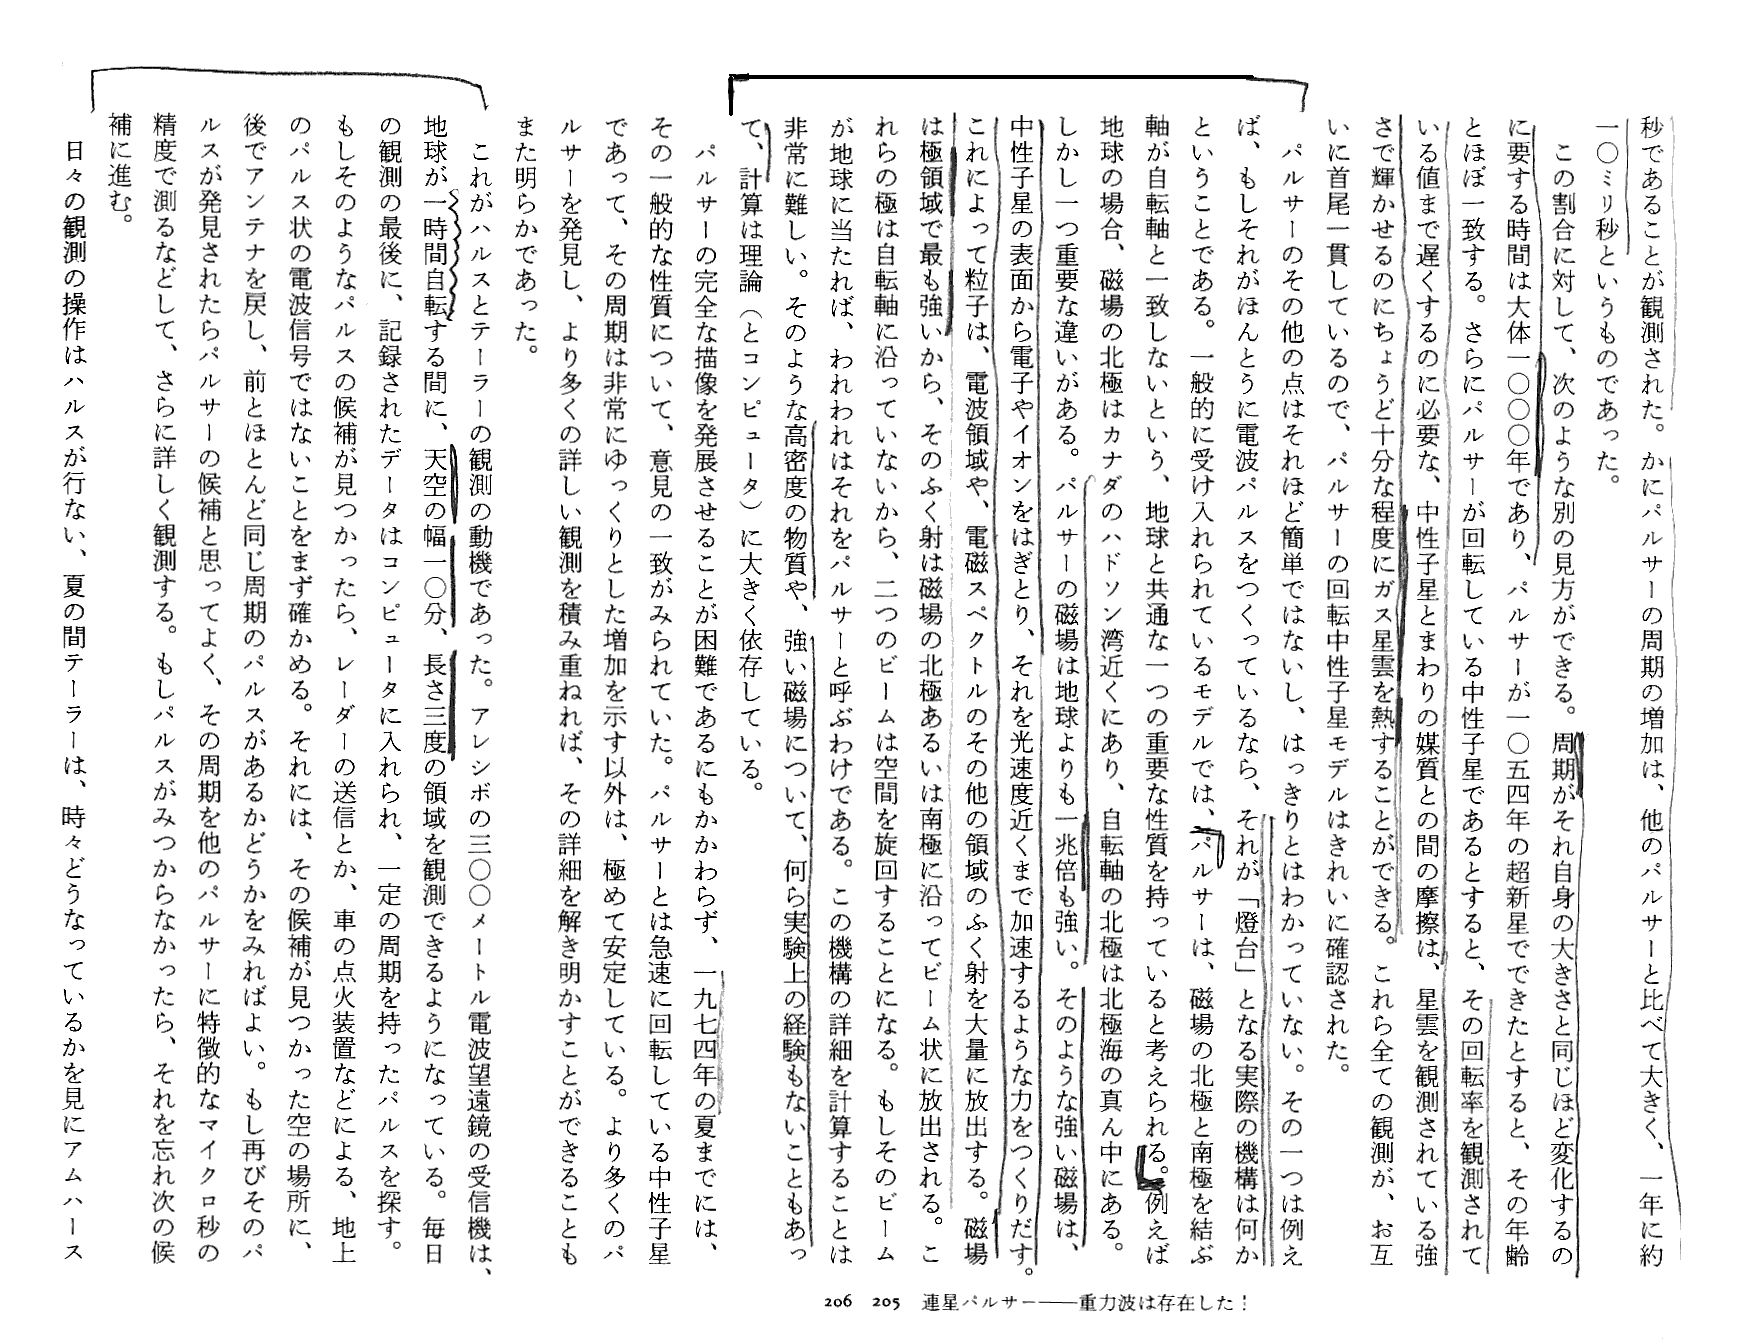 秒であることが観測された。かにパルサーの周期の増加は、他のパルサーと比べて大きく、一年に約
一〇ミリ秒というものであった。
この割合に対して、次のような別の見方ができる。周期がそれ自身の大きさと同じほど変化するの
に要する時間は大体一〇〇〇年であり、パルサーが一〇五四年の超新星でできたとすると、その年齢
とほぼ一致する。さらにパルサーが回転している中性子星であるとすると、その回転率を観測されて
いる値まで遅くするのに必要な、中性子星とまわりの媒質との間の摩擦は、星雲を観測されている強
さで輝かせるのにちょうど十分な程度にガス星雲を熱することができる。これら全ての観測が、お互
いに首尾一貫しているので、パルサーの回転中性子星モデルはきれいに確認された。
パルサーのその他の点はそれほど簡単ではないし、はっきりとはわかっていない。その一つは例え
ば、もしそれがほんとうに電波パルスをつくっているなら、それが「燈台」となる実際の機構は何か
ということである。一般的に受け入れられているモデルでは、パルサーは、磁場の北極と南極を結ぶ
軸が自転軸と一致しないという、地球と共通な一つの重要な性質を持っていると考えられる。例えば
地球の場合、磁場の北極はカナダのハドソン湾近くにあり、自転軸の北極は北極海の真ん中にある。
しかし一つ重要な違いがある。パルサーの磁場は地球よりも一兆倍も強い。そのような強い磁場は、
中性子星の表面から電子やイオンをはぎとり、それを光速度近くまで加速するような力をつくりだす。
これによって粒子は、電波領域や、電磁スペクトルのその他の領域のふく射を大量に放出する。磁場
は極領域で最も強いから、そのふく射は磁場の北極あるいは南極に沿ってビーム状に放出される。こ
れらの極は自転軸に沿っていないから、二つのビームは空間を旋回することになる。もしそのビーム
が地球に当たれば、われわれはそれをパルサーと呼ぶわけである。この機構の詳細を計算することは
非常に難しい。そのような高密度の物質や、強い磁場について、何ら実験上の経験もないこともあっ
て、計算は理論（とコンピュータ）に大きく依存している。
パルサーの完全な描像を発展させることが困難であるにもかかわらず、一九七四年の夏までには、
その一般的な性質について、意見の一致がみられていた。パルサーとは急速に回転している中性子星
であって、その周期は非常にゆっくりとした増加を示す以外は、極めて安定している。より多くのパ
ルサーを発見し、より多くの詳しい観測を積み重ねれば、その詳細を解き明かすことができることも
また明らかであった。
これがハルスとテーラーの観測の動機であった。アレシボの三〇〇メートル電波望遠鏡の受信機は、
地球が一時間自転する間に、天空の幅一〇分、長さ三度の領域を観測できるようになっている。毎日
の観測の最後に、記録されたデータはコンピュータに入れられ、一定の周期を持ったパルスを探す。
もしそのようなパルスの候補が見つかったら、レーダーの送信とか、車の点火装置などによる、地上
のパルス状の電波信号ではないことをまず確かめる。それには、その候補が見つかった空の場所に、
後でアンテナを戻し、前とほとんど同じ周期のパルスがあるかどうかをみればよい。もし再びそのパ
ルスが発見されたらパルサーの候補と思ってよく、その周期を他のパルサーに特徴的なマイクロ秒の
精度で測るなどして、さらに詳しく観測する。もしパルスがみつからなかったら、それを忘れ次の候
補に進む。
日々の観測の操作はハルスが行ない、夏の間テーラーは、時々どうなっているかを見にアムハース
206 205 連星パルサー──重力波は存在した！